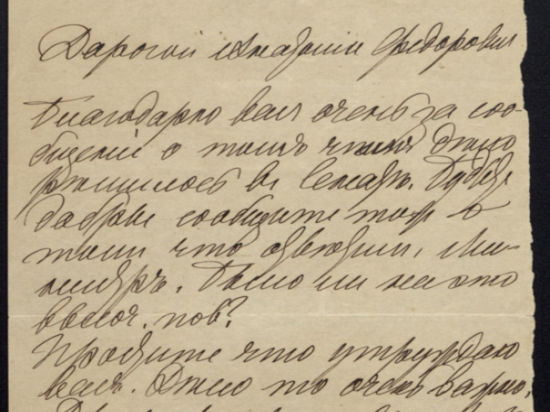 Дарогой Анатолiй Федорович
Благодарю вас очень за соо
бщенiе о томъ чѣмъ дѣло
рѣшилось въ Сенатѣ. Будьте
добры сообщите о
томъ что Ми-
нистръ. Было ли на это
высоч. пов?
Простите что утруждаю
васъ. Дѣло то очень важно.